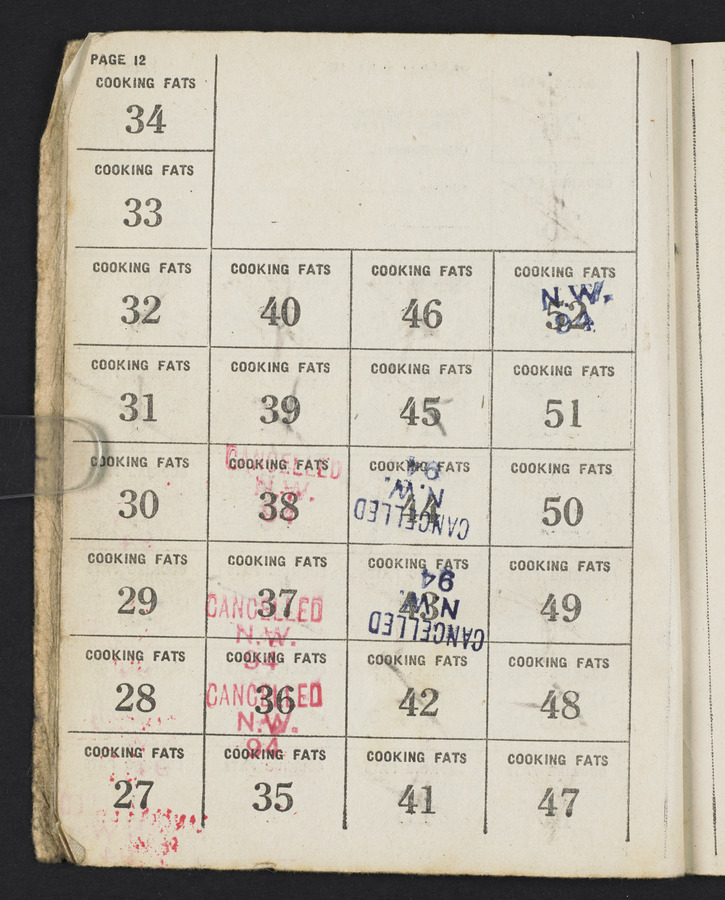 PAGE 12
COOKING FATS
34
COOKING FATS
33
COOKING FATS COOKING FATS COOKING FATS COOKING FATS
32 40 46 52
N.W.
94
COOKING FATS COOKING FATS COOKING FATS COOKING FATS
31 39 45 51
COOKING FATS COOKING FATS COOKING FATS COOKING FATS
30 38 44 50
CANCELLED
N.W.
94
CANCELLED
N.W.
94
COOKING FATS COOKING FATS COOKING FATS COOKING FATS
29 37 43 49
CANCELLED
N.W.
94
CANCELLED
N.W.
94
COOKING FATS COOKING FATS COOKING FATS COOKING FATS
28 36 42 48
CANCELLED
N.W.
94
COOKING FATS COOKING FATS COOKING FATS COOKING FATS
27 35 41 47